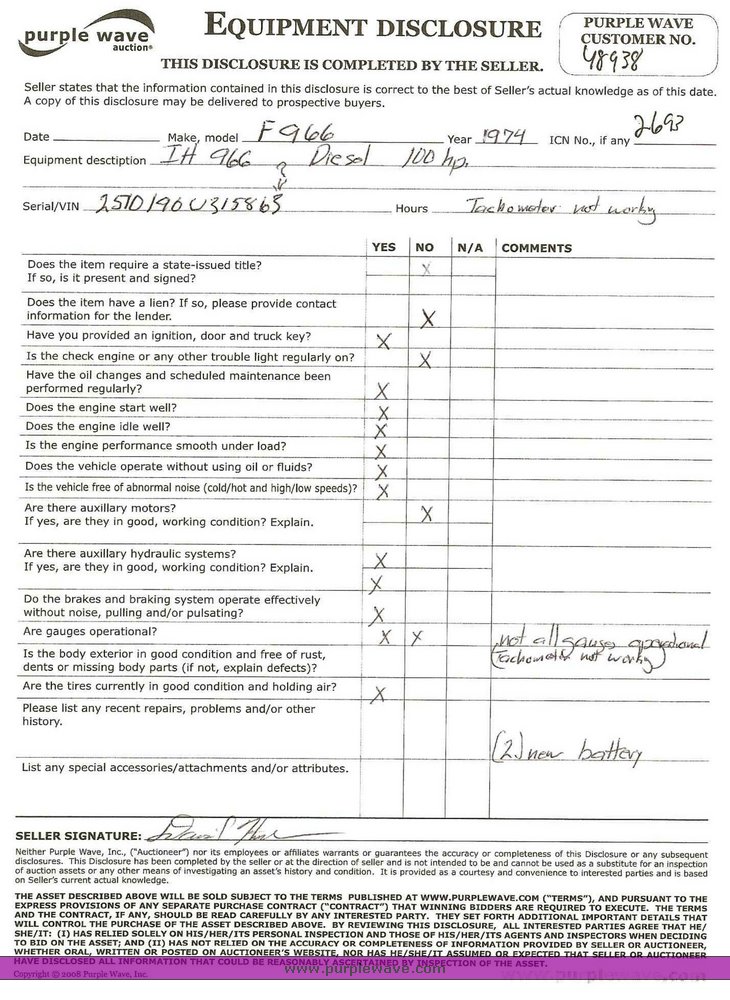 purple wave
auction®
EQUIPMENT DISCLOSURE
THIS DISCLOSURE IS COMPLETED BY THE SELLER.
PURPLE WAVE
CUSTOMER NO.
48938
Seller states that the information contained in this disclosure is correct to the best of Seller's actual knowledge as of this date.
A copy of this disclosure may be delivered to prospective buyers.
Date Make, model F966 Year 1974 ICN No., if any 2693
Equipment desctiption IH 966 Diesel 100 hp.
?
Serial/VIN 2510190U315863 Hours Tachometer not workg
YES NO N/A COMMENTS
Does the item require a state-issued title? X
If so, is it present and signed?
Does the item have a lien? If so, please provide contact
information for the lender. X
Have you provided an ignition, door and truck key? X
Is the check engine or any other trouble light regularly on? X
Have the oil changes and scheduled maintenance been
performed regularly? X
Does the engine start well? X
Does the engine idle well? X
Is the engine performance smooth under load? X
Does the vehicle operate without using oil or fluids? X
Is the vehicle free of abnormal noise (cold/hot and high/low speeds)? X
Are there auxillary motors? X
If yes, are they in good, working condition? Explain.
Are there auxillary hydraulic systems? X
If yes, are they in good, working condition? Explain.
X
Do the brakes and braking system operate effectively
without noise, pulling and/or pulsating? X
Are gauges operational? X X not all gauges operational
(tachometer not workg)
Is the body exterior in good condition and free of rust,
dents or missing body parts (if not, explain defects)?
Are the tires currently in good condition and holding air? X
Please list any recent repairs, problems and/or other
history.
(2) new battery
List any special accessories/attachments and/or attributes.
SELLER SIGNATURE:
Neither Purple Wave, Inc., ("Auctioneer") nor its employees or affiliates warrants or guarantees the accuracy or completeness of this Disclosure or any subsequent
disclosures. This Disclosure has been completed by the seller or at the direction of seller and is not intended to be and cannot be used as a substitute for an inspection
of auction assets or any other means of investigating an asset's history and condition. It is provided as a courtesy and convenience to interested parties and is based
on Seller's current actual knowledge.
THE ASSET DESCRIBED ABOVE WILL BE SOLD SUBJECT TO THE TERMS PUBLISHED AT WWW.PURPLEWAVE.COM ("TERMS"), AND PURSUANT TO THE
EXPRESS PROVISIONS OF ANY SEPARATE PURCHASE CONTRACT ("CONTRACT") THAT WINNING BIDDERS ARE REQUIRED TO EXECUTE. THE TERMS
AND THE CONTRACT, IF ANY, SHOULD BE READ CAREFULLY BY ANY INTERESTED PARTY. THEY SET FORTH ADDITIONAL IMPORTANT DETAILS THAT
WILL CONTROL THE PURCHASE OF THE ASSET DESCRIBED ABOVE. BY REVIEWING THIS DISCLOSURE, ALL INTERESTED PARTIES AGREE THAT HE/
SHE/IT: (I) HAS RELIED SOLELY ON HIS/HER/ITS PERSONAL INSPECTION AND THOSE OF HIS/HER/ITS AGENTS AND INSPECTORS WHEN DECIDING
TO BID ON THE ASSET; AND (II) HAS NOT RELIED ON THE ACCURACY OR COMPLETENESS OF INFORMATION PROVIDED BY SELLER OR AUCTIONEER,
WHETHER ORAL, WRITTEN OR POSTED ON AUCTIONEER'S WEBSITE, NOR HAS HE/SHE/IT ASSUMED OR EXPECTED THAT SELLER OR AUCTIONEER
HAVE DISCLOSED ALL INFORMATION THAT COULD BE REASONABLY ASCERTAINED BY INSPECTION OF THE ASSET.
Copyright © 2008 Purple Wave, Inc.
www.purplewave.com